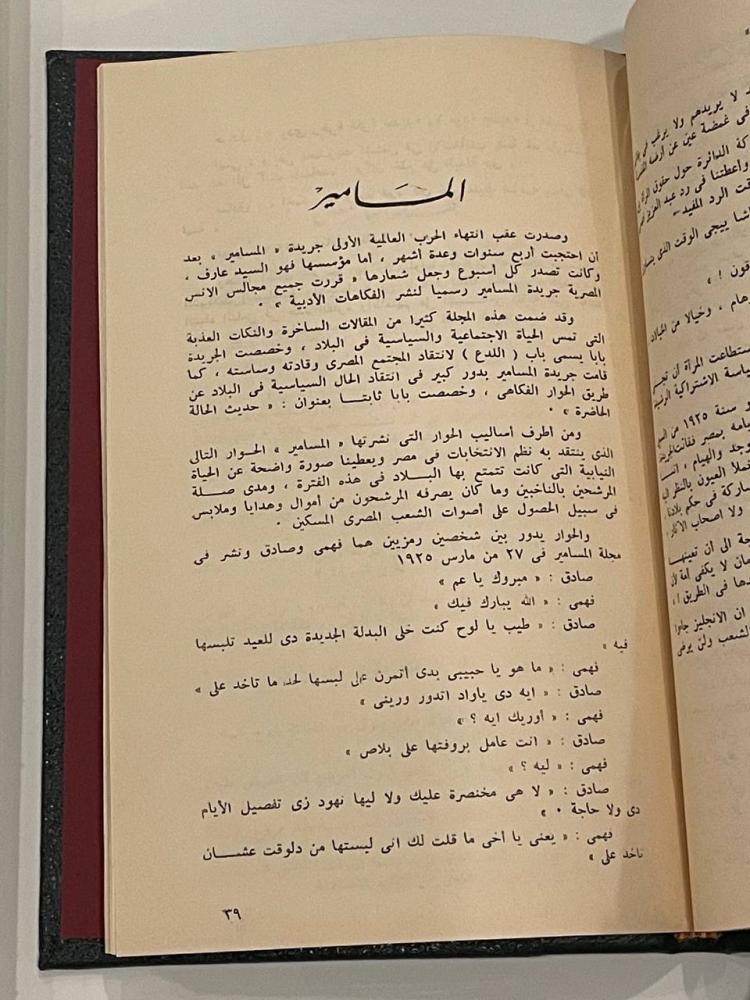 المسامير
وصدرت عقب انتهاء الحرب العالمية الأولى جريدة « المسامير » بعد
أن احتجبت أربع سنوات وعدة أشهر ، أما مؤسسها فهو السيد عارف ،
وكانت تصدر كل أسبوع وجعل شعارها « قررت جميع مجالس الانس
المصرية جريدة المسامير رسميا لنشر الفكاهات الأدبية » .
وقد ضمت هذه المجلة كثيرا من المقالات الساخرة والنكات العذبة
التى تمس الحياة الاجتماعية والسياسية فى البلاد ، وخصصت الجريدة
بابا يسمى باب ( اللدع ) لانتقاد المجتمع المصرى وقادته وساسته ، كما
قامت جريدة المسامير بدور كبير فى انتقاد الحال السياسية فى البلاد عن
طريق الحوار الفكاهى ، وخصصت بابا ثابتـــا بعنوان : « حديث الحالة
الحاضرة » .
ومن اطرف أساليب الحوار التى نشرتها « المسامير » الحـوار التالى
الذى ينتقد به نظم الانتخابات فى مصر ويعطينا صورة واضحة عن الحياة
النيابية التى كانت تتمتع بها البـــلاد فى هذه الفترة ، ومدى صـــلة
المرشحين بالناخبين وما كان يصرفه المرشحون من أموال وهدايا وملابس
فى سبيل الحصول على أصوات الشعب المصرى المسكين .
والحوار يدور بين شخصين رمزيين هما فهمى وصادق ونشر فى
مجلة المسامير فى ٢٧ من مارس ١٩٢٥
صادق : « مبروك يا عم »
فهمى : « الله يبارك فيك »
صادق : « طيب يا لوح كنت خلى البدلة الجديدة دى للعيد تلبسها
فيه »
فهمى : « ما هو يا حبيبى بدى أتمرن على لبسها لحد ما تاخد على »
صادق : « ايه دى ياواد اتدور ورينى »
فهمى : « أوريك ايه ؟ »
صادق : « انت عامل بروفتها على بلاص »
فهمى : « ليه ؟ »
صادق : « لا هى مخنصرة عليك ولا ليها نهود زى تفصيل الأيام
دى ولا حاجة . »
فهمى : « يعنى يا أخى ما قلت لك انى لبستها من دلوقت عشـــان
تاخد على »
٣٩
لا يريدهم ولا يرغب
فى غمضة عين عن أرضه
الدائرة حول حقوق
واعطتنا فى رد عبد العزيز
الرد المفيد
ييجى الوقت الذى
! »
، وخيالا من
استطاعت المرأة أن
الاشتراكية
سنة ١٩٢٥ من
بمصر
والهيام ،
العيون بالنظر
فى حكم بلادنا
ولا اصحاب
الى أن تعينهـا
لا يكفى
فى الطريق !
ان الانجليز
الشعب ولن يرضى